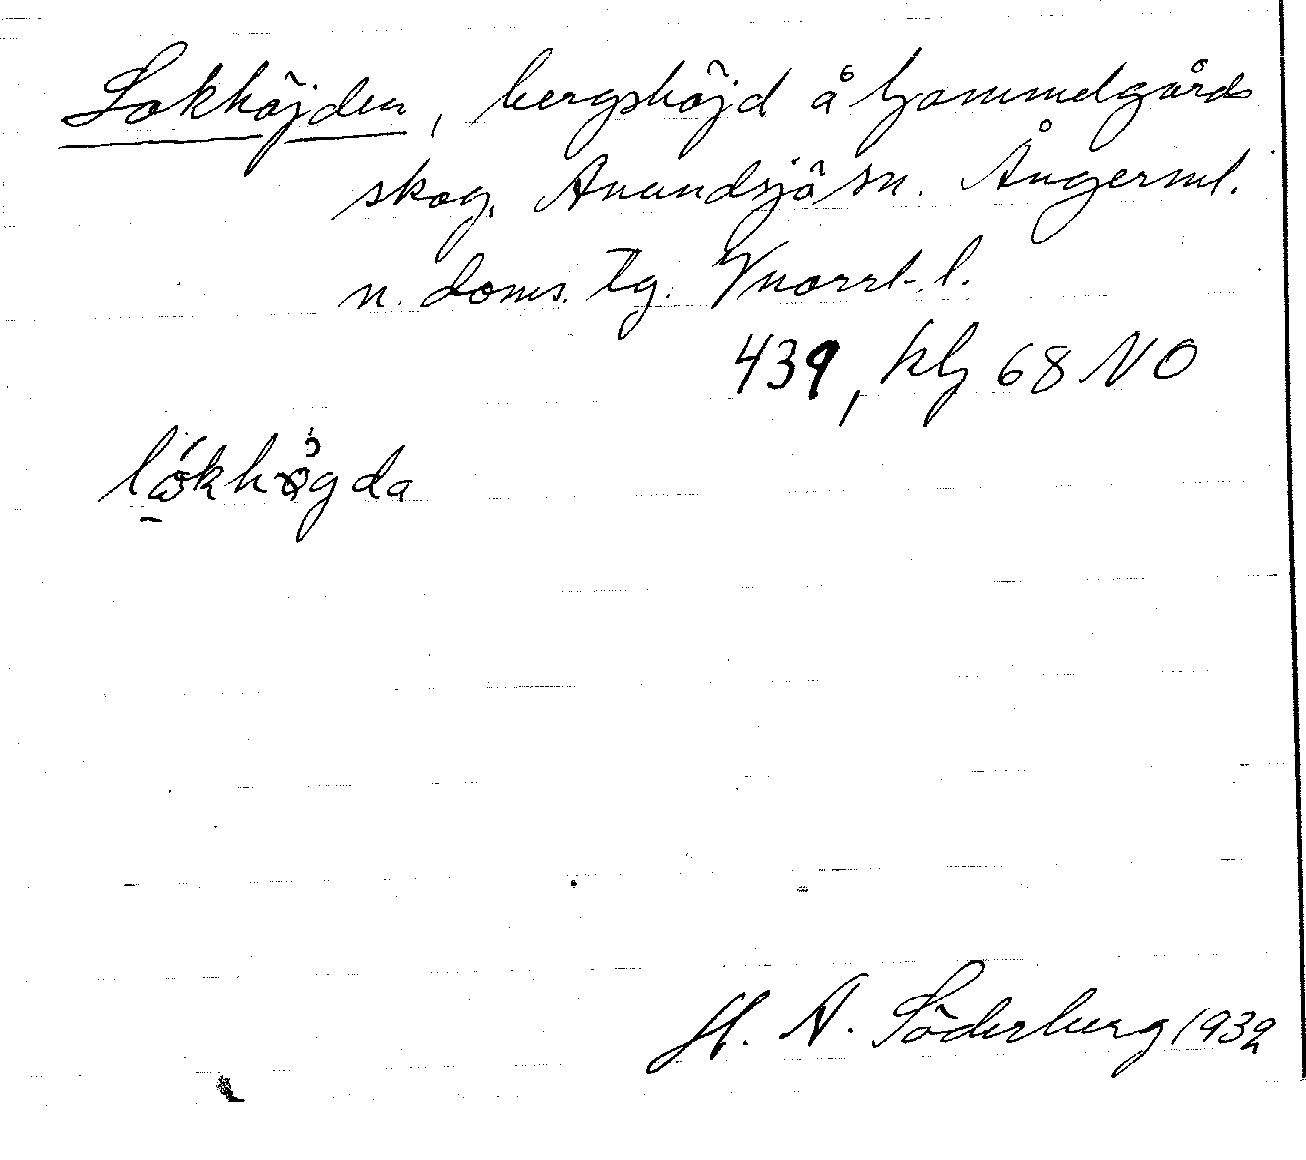 Lokhöjden, bergshöjd å Gammelgårds
skog, Anundsjö sn. Ångerml.
n. doms. tg. Vnorrl. l.
439, klg 68 NO
lókhögda
H. A. Söderberg 1932